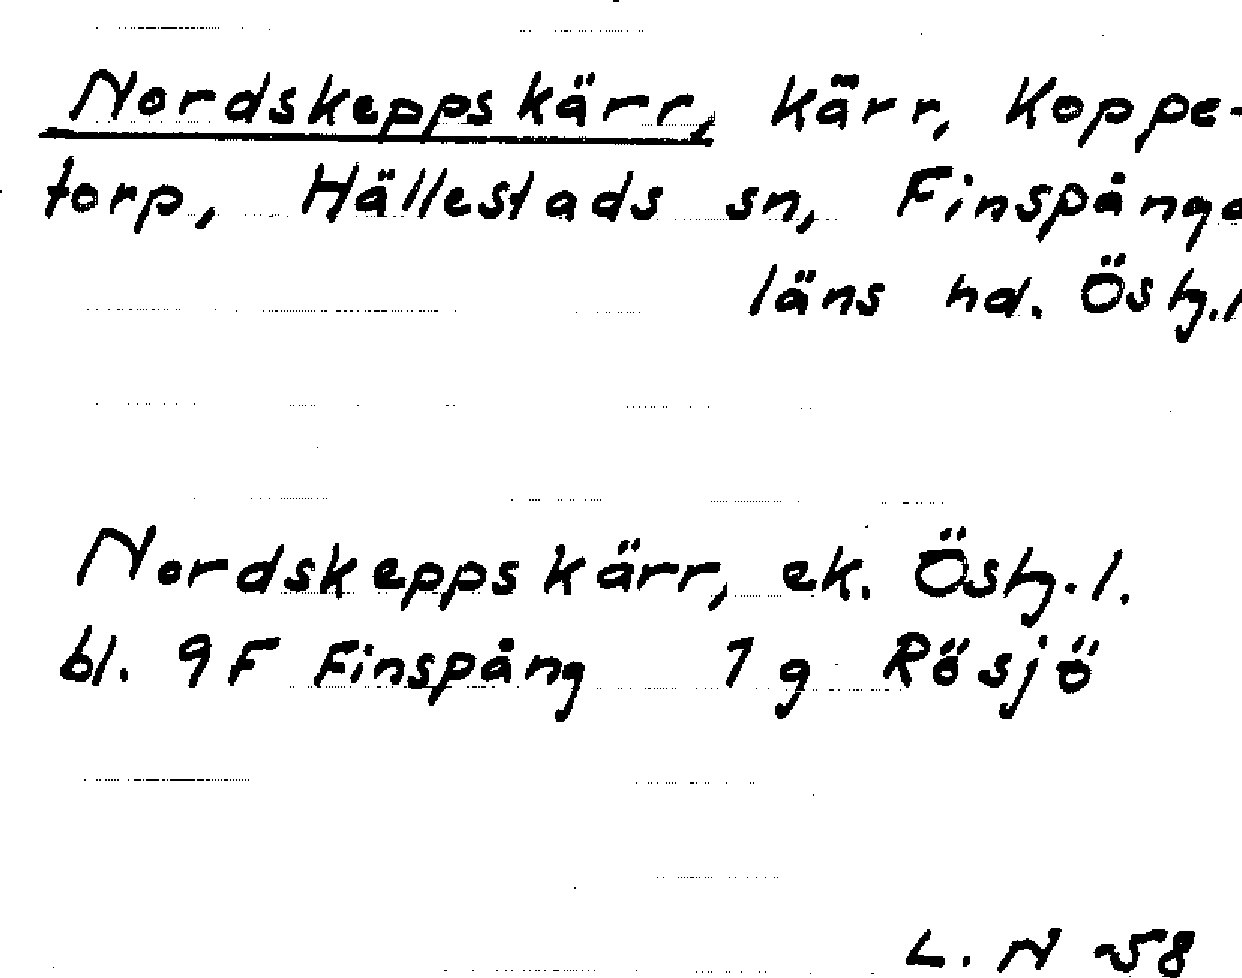 Nordskeppskärr, kärr, Koppe-
torp, Hällestads sn, Finspånga
läns hd. Östg.l
Nordskeppskärr, ek. Östg.l.
bl. 9F Finspång 7g Rösjö
L. N -58